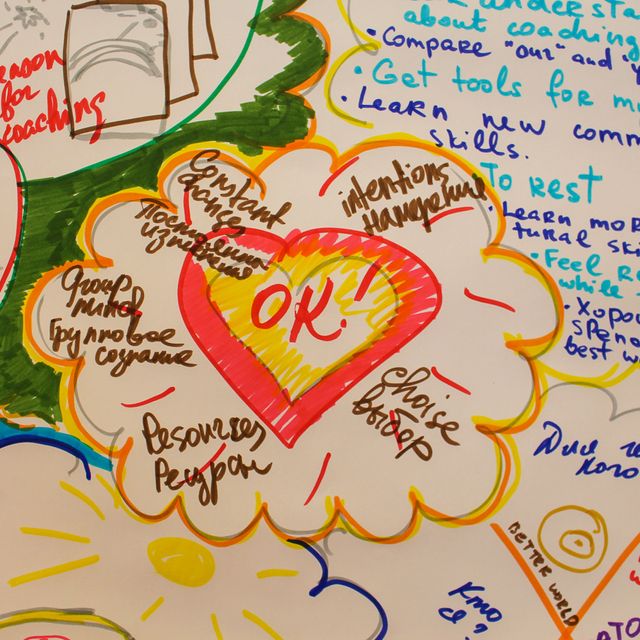 for
coaching
about coaching
• Compare "our" and
• Get tools for
• Learn new comm
skills.
To rest
• Learn mor
tural ski
• Feel R
while
• Хоро
spend
best w
Constant
Постоянные
изменения
intentions
Намерения
Group
mind
Групповое
сознание
OK!
choise
выбор
Resources
Ресурсы
Для
кого
BETTER WORLD
Кто
я?